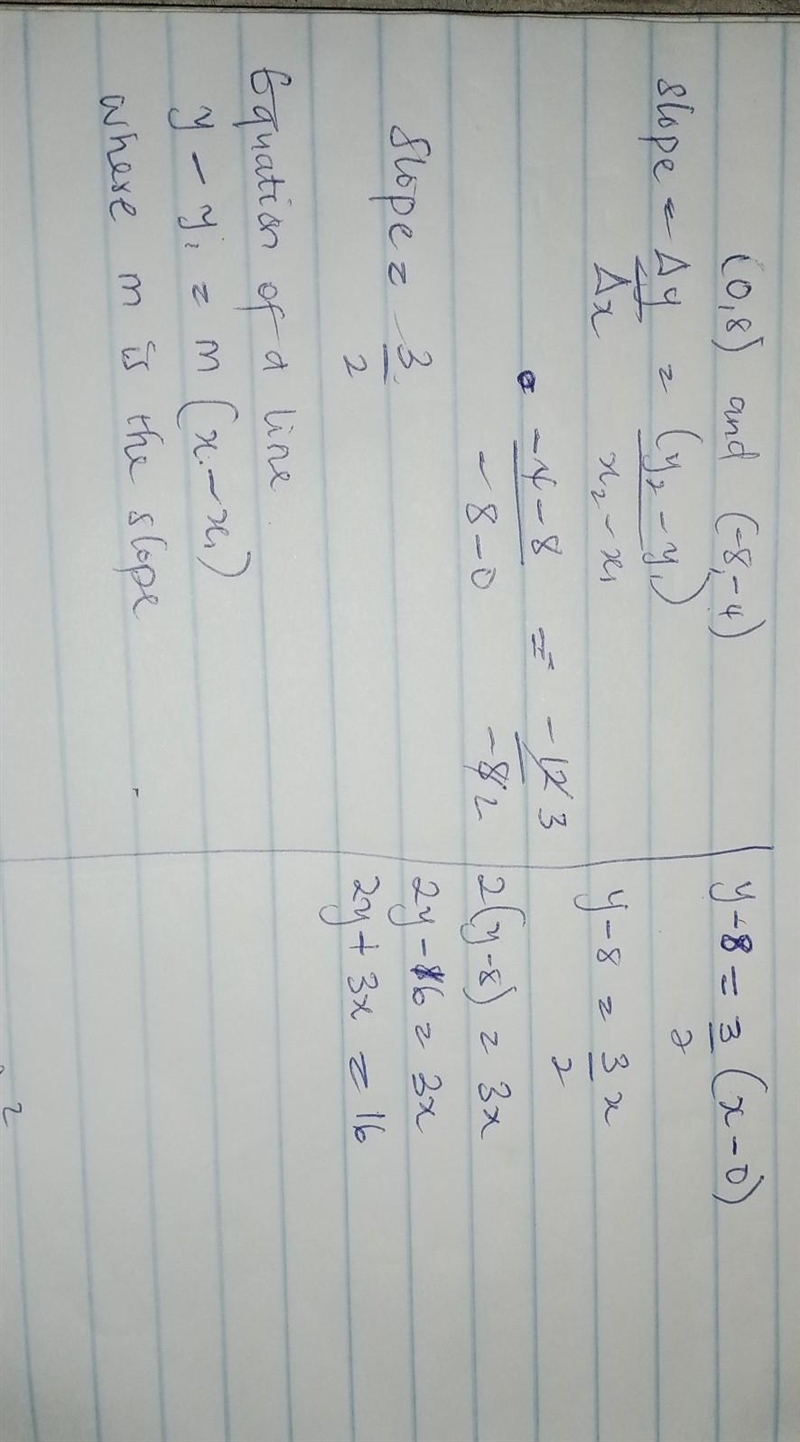 (0,8) and (-8,-4)
slope = Δy/Δx = (y₂ - y₁)/x₂ - x₁
-4-8/-8-0 = -12 3/-8 2
slope = 3/2
Equation of a line.
y - y₁ = m (x - x₁)
where m is the slope
y-8 = 3/2 (x-0)
y-8 = 3/2 x
2(y-8) = 3x
2y-16 = 3x
2y+3x = 16
2